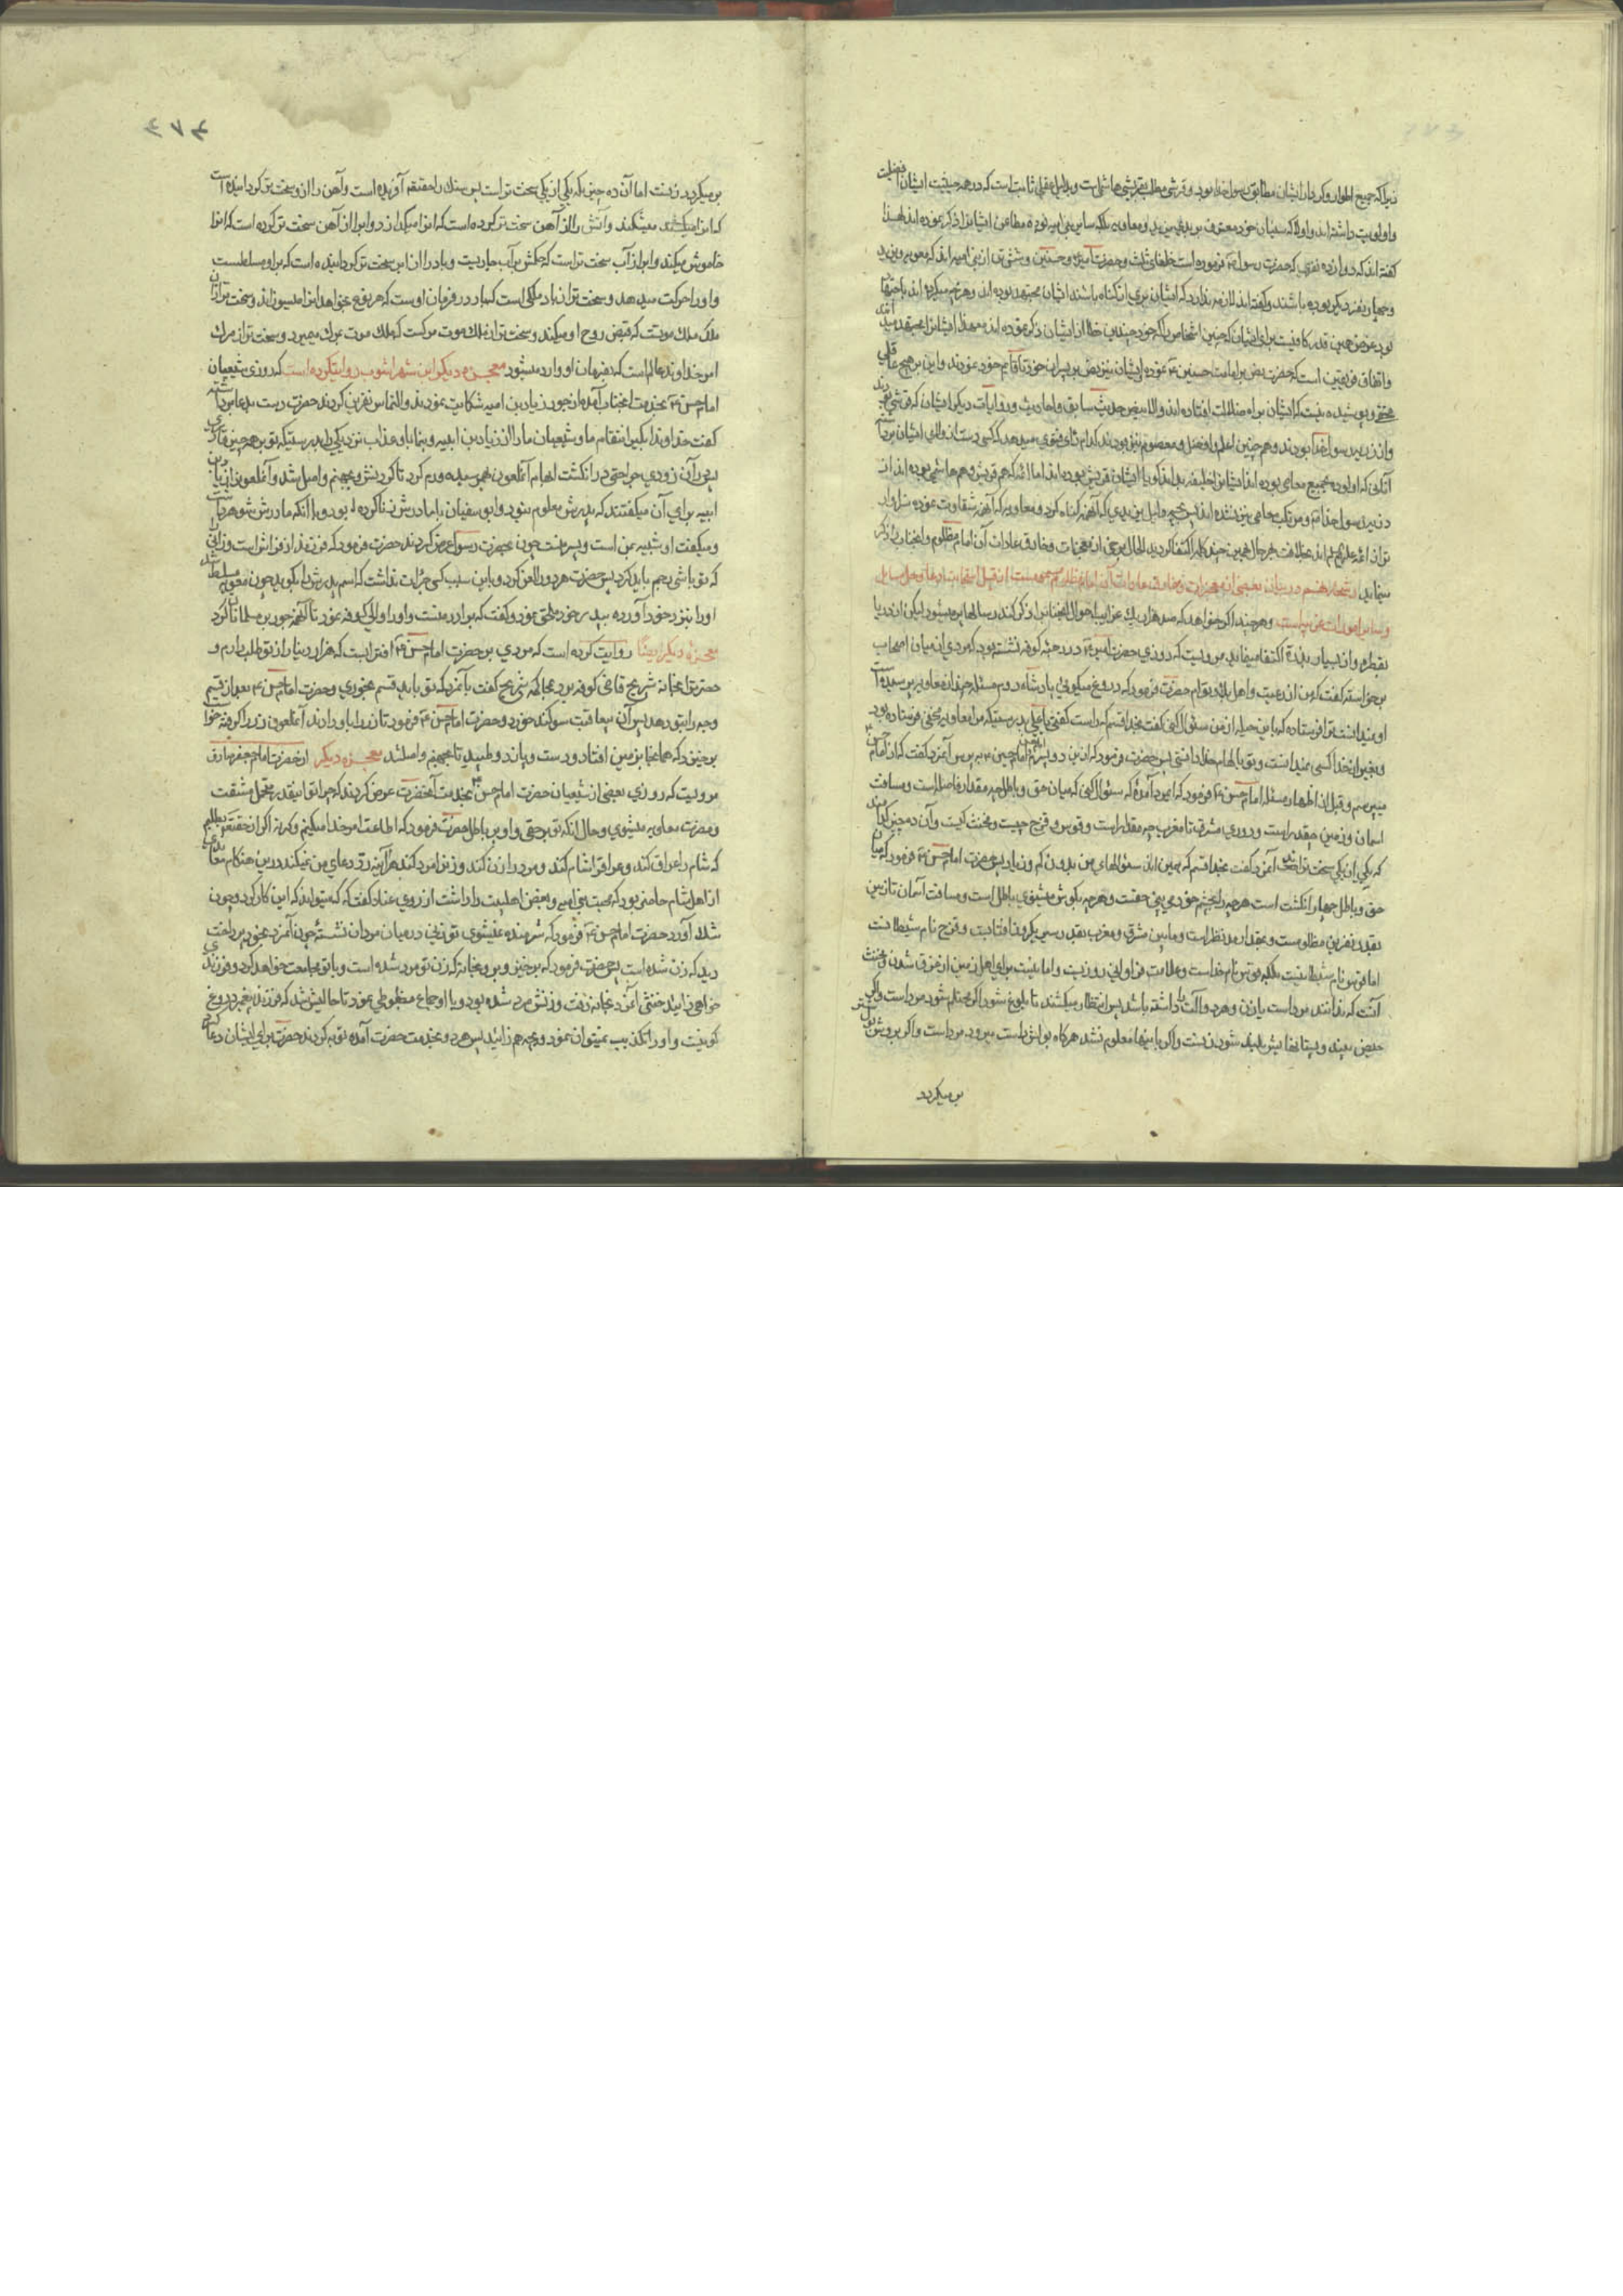 زیرا که جمیع اطوار و کردار ایشان مطابق رسول خدا بود و قرشی مطلبی قریشی هاشمی است و بدلایل عقلی ثابت است که در همه حیثیت ایشان افضلیت
و اولویت داشته اند و اولا که سنیان خود معترف بر بدی یزید و معاویه بلکه سایر بنی امیه بوده مطاعن ایشانرا ذکر نموده اند لهذا
گفته اند که دوازده نفری که حضرت رسول فرموده است خلفای ثلث و حضرت امیر و حسنین و شش تن از بنی امیه اند که معویه و یزید
و چهار نفر دیگر بوده باشند و گفته اند لازم ندارد که ایشان بری از گناه باشند ایشان مجتهد بوده اند و هرچه میکرده اند باجتهاد
بود عرض همین قدر کافیست برای ایشان که چنین اشخاص را که خود چندین خطا از ایشان ذکر نموده اند معهذا ایشانرا مجتهد میدانند
و اتفاق فریقین است که حضرت نص بر امامت حسنین نموده ایشان نیز نص بر پسران خود تا قائم خود نمودند و این بر هیچ عاقلی
مخفی و پوشیده نیست که ایشان براه ضلالت افتاده اند والا بنص حدیث سابق و احادیث و روایات دیگر ایشان که قرشی بودند
و از ذریه رسول خدا بودند و هم چنین اعلم و افضل و معصوم نیز بودند کدام رای فتوی میدهد که کسی دست از ولای ایشان بردارد
آنکس که اولوده بجمیع معاصی بوده اند ایشانرا خلیفه بداند گویا ایشان قریش بوده اند اما ائمه که هم قریش و هم هاشمی بوده اند از
ذریه رسول خدا و مرتکب معاصی نیز نشده اند پس بجهه دلیل این یزیدی که آنهمه گناه کرد و معاویه که آنهمه شقاوت نموده سزاوار
تر از ائمه علیهم اند بخلافت بهر حال همین چند کلمه اکتفا گردید الحال برخی از معجزات و خارق عادات آن امام مظلوم و انجناب را ذکر
مینماید شجاره هشتم در بیان بعضی از معجزات و خارق عادات آن امام مظلوم مسموم است از قبیل استجابت دعا و حل مسایل
و سایر امورات غریبه است و هرچند اگر خواهد که صد هزار یک غرایب احوال انجنابرا ذکر کند رسالها پر میشود لیکن از دریا
بقطره و از بسیار باندک اکتفا مینماید مرویست که روزی حضرت امیر در رحبه کوفه نشسته بود که مردی از میان اصحاب
برخواسته گفت که من از رعیت و اهل بلاد توام حضرت فرمود که دروغ میگوئی پادشاه روم مسئله چند از معاویه پرسیده است
او نمیدانست ترا فرستاده که باین حیله از من سئوال کنی گفت بخدا قسم که راست گفتی یا علی بدرستیکه مرا معاویه مخفی فرستاده بود
و بغیر از خدا کسی نمیدانست و تو بالهام خدا دانستی پس حضرت فرمود که از این دو پسرم امام حسین بپرس آنمرد گفت که از امام حسن
میپرسم و قبل از اظهار مسئله امام حسن فرمود که ایمرد آمدهٔ که سئوال کنی که میان حق و باطل چه مقدار فاصله است و مسافت
اسمان و زمین چقدر است و دوری مشرق تا مغرب چه مقدار است و قوس و قزح چیست و مخنث کیست و آن ده چیز کدامند
که یکی از یکی سخت تر است آنمرد گفت بخدا قسم که همین اند سئوالهای من بدون کم و زیاد پس حضرت امام حسن فرمود که میان
حق و باطل چهار انگشت است هرچه را بچشم خود می بینی حقست و هرچه بگوش میشنوی باطل است و مسافت آسمان تا زمین
بقدر نفرین مظلومست و بمقدار مد نظر است و مابین مشرق و مغرب بقدر سیر یکروزه آفتابست و قزح نام شیطانست
اما قوس نام شیطان نیست بلکه قوس نام خداست و علامت فراوانی روزیست و امانیست برای اهل زمین از غرق شدن و مخنث
آنست که ندانند مرداست یا زن و هر دو آلت را داشته باشد پس انتظار میکشند تا بلوغ شود اگر محتلم شود مرداست و اگر
حیض بیند و پستانهایش بلند شود زنست و اگر باینها معلوم نشد هرگاه بولش راست میرود مرد است و اگر بروش بول شتر
بر میگردد
بر میگردد زنست اما آن ده چیز که یکی از یکی سخت تر است پس سنک را حقتعالی آفریده است و آهن را از او سخت تر گردانیده است
که انرا میشکند و آتش را از آهن سخت تر کرده است که انرا میگدازد و ابرا از آهن سخت تر کرده است که انرا
خاموش میکند و ابر از آب سخت تر است که حکمش بر آب جاریست و باد را از ابر سخت تر گردانیده است که بر او مسلطست
و او را حرکت میدهد و سخت تر از باد ملکی است که باد در فرمان اوست که هر نوع خواهد انرا میراند و سخت تر از آن
ملک ملک موتست که قبض روح او میکند و سخت تر از ملک موت مرگست که ملک موت بمرگ میمیرد و سخت تر از مرگ
امر خداوند عالم است که بفرمان او وارد میشود معجزه دیگر ابن شهر اشوب روایتکرده است که روزی شیعیان
امام حسن بخدمت انجناب آمده از جور زیاد بن امیه شکایت نمودند و التماس نفرین کردند حضرت دست بدعا برداشته
گفت خداوندا بگیر انتقام ما و شیعیان ما را از زیاد بن ابیه و بنما باو عذاب نزدیکی را بدرستیکه تو بر هر چیز قادری
پس در آن زودی جراحتی در انگشت ابهام آنملعون بهم رسید و ورم کرد تا گردنش و بجهنم واصل شد و آنملعون را زیاد بن
ابیه برای آن میگفتند که پدرش معلوم نبود و ابو سفیان با مادرش زنا کرده بود و با آنکه مادرش شوهر داشت
و میگفت او شبیه بمن است و پسر منست چون بحضرت رسول عرض کردند حضرت فرمود که فرزند از فراش است و زانی
که تو باشی رجم باید کرد پس حضرت هر دو را لعن کرد و باین سبب کسی جرأت نداشت که اسم پدرش را بگوید چون معویه مسلط شد
او را نیز خود آورده بپدر خود ملحق نمود و گفت که برادر منست و او را والی کوفه نمود تا آنچه جور بر مسلمانان کرد
معجزه دیگر ایضا روایت کرده است که مردی بر حضرت امام حسن افترا بست که هزار دینار از تو طلب دارم و
حضرت را بخانه شریح قاضی کوفه برد بمحاکمه شریح گفت بآنمرد که تو باید قسم بخوری و حضرت امام حسن بعد از قسم
وجه را بتو دهد پس آن بیعاقبت سوگند خورد و حضرت امام حسن فرمود تا زر را باو دادند آنملعون زر را گرفته خواست
برخیزد که همانجا بر زمین افتاد و دست و پا زد و طپید تا بجهنم واصل شد معجزه دیگر از حضرت امام جعفر صادق
مرویست که روزی بعضی از شیعیان حضرت امام حسن بخدمت آنحضرت عرض کردند که چرا تو اینقدر متحمل مشقت
و مضرت معاویه میشوی و حال انکه تو برحقی و او بر باطل حضرت فرمود که اطاعت امر خدا میکنم و گرنه اگر از حقتعالی بطلبم
که شام را عراق کند و عراق را شام کند و مرد را زن کند و زنرا مرد کند هر آینه رد دعای من نمیکند در این هنگام
از اهل شام حاضر بود که محبت بنی امیه و بغض اهلبیت را داشت از روی عناد گفت که که میتواند که این کار کرد و چون
شد آورد حضرت امام حسن فرمود که شرمنده نمیشوی تو زنی در میان مردان نشستهٔ چون آنمرد بخود پرداخت
دید که زن شده است پس حضرت فرمود که برخیز و برو بخانه که زن تو مرد شده است و با تو مجامعت خواهد کرد و فرزندی
خواهی زایید خنثی آنمرد بخانه رفت و زنش مرد شده بود و با او جماع مضبوطی نمود تا حالیش شد که فرزند پیغمبر دروغ
گو نیست و او را تکذیب نمیتوان نمود و بچه هم زائید پس هر دو بخدمت حضرت آمده توبه کردند حضرت برای ایشان دعا کرد